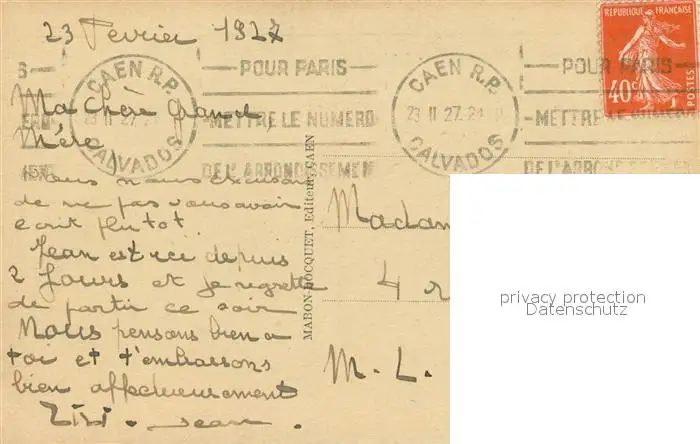 23 Fevrier 1927
CAEN R.P.
23 II 27
CALVADOS
POUR PARIS
METTRE LE NUMERO
DE L'ARRONDISSEMENT
CAEN R.P.
23 II 27
CALVADOS
POUR PARIS
METTRE LE NUMERO
REPUBLIQUE FRANÇAISE
POSTES
40c
Ma Chère Grand
Mère
Nous nous excusons
de ne pas vous avoir
écrit plutot.
Jean est ici depuis
2 Jours et je regrette
de partir ce soir
Nous pensons bien a
toi et t'embrassons
bien affectueusement
Zizi. Jean.
MABON-HOCQUET, Editeur, CAEN
Madam
4 r
M. L.
privacy protection
Datenschutz